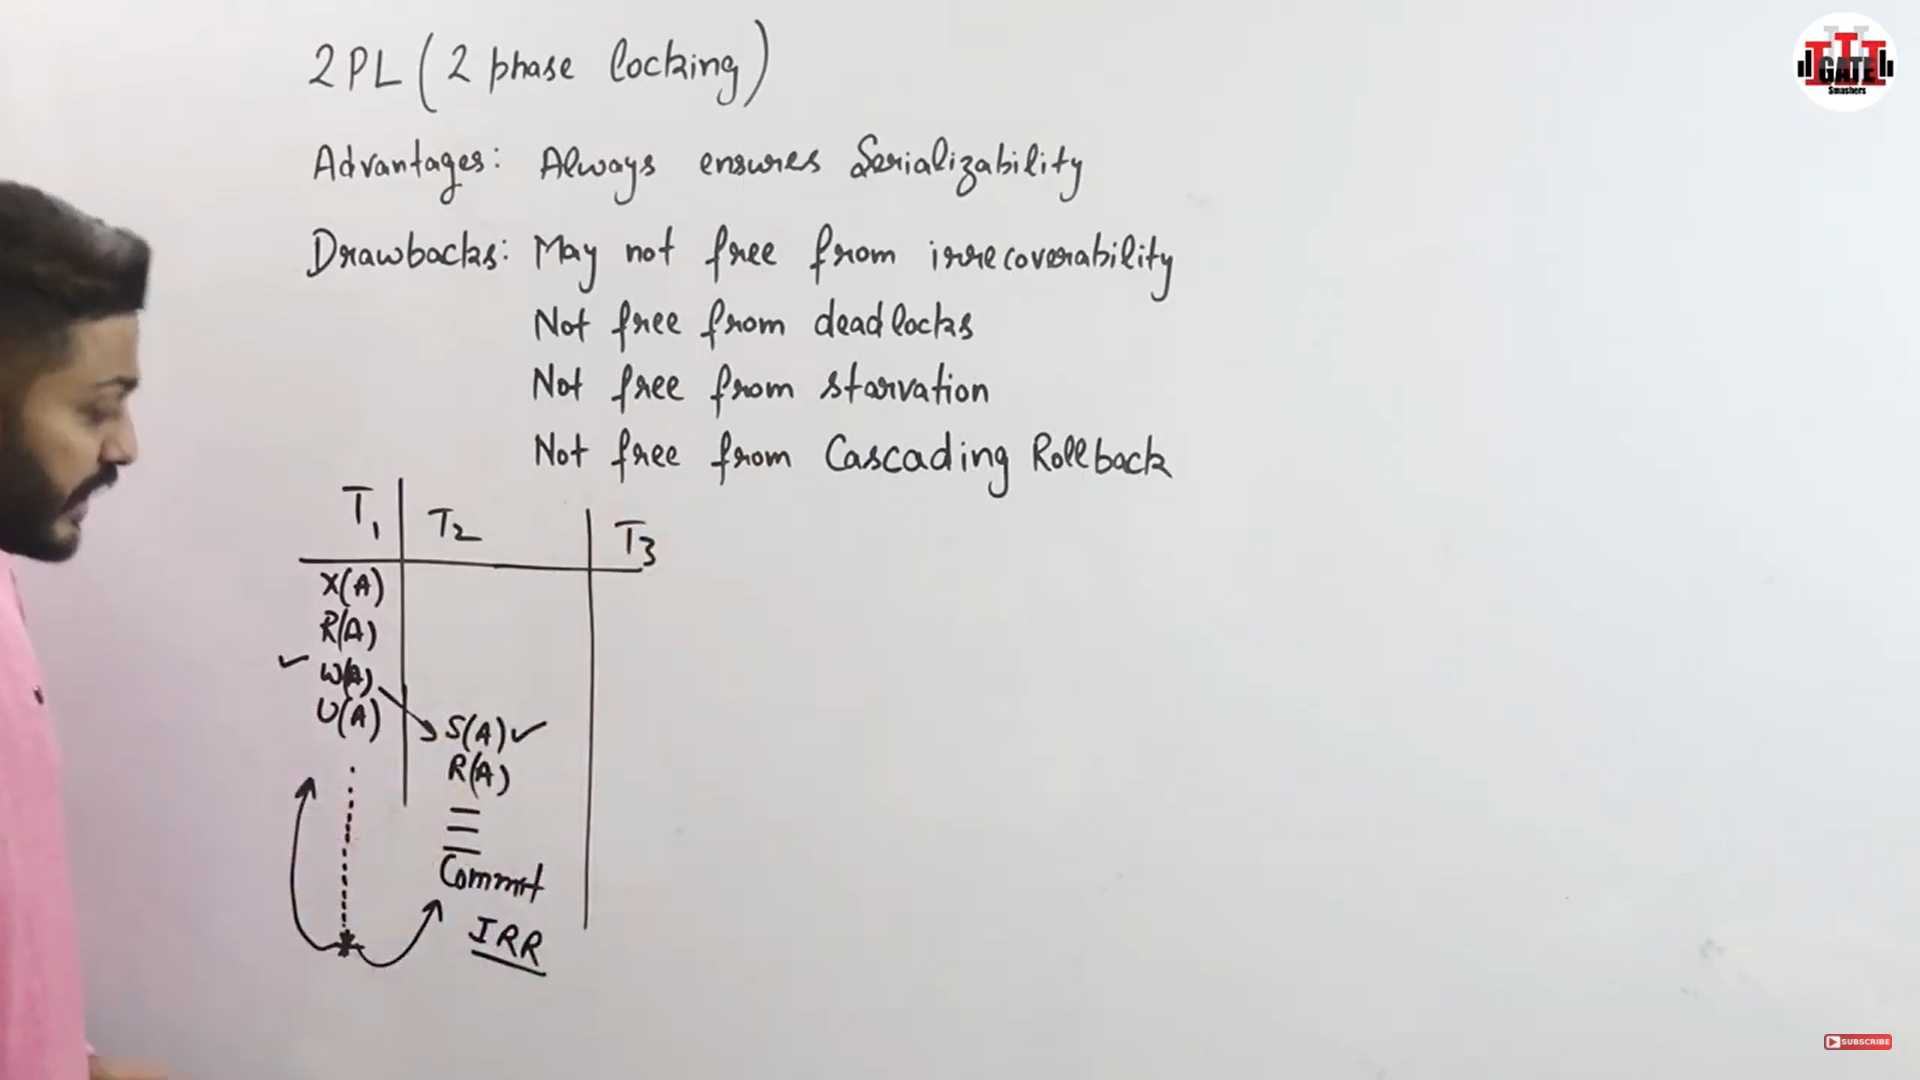 2PL (2 phase locking)
Advantages: Always ensures Serializability
Drawbacks: May not free from irrecoverability
Not free from deadlocks
Not free from starvation
Not free from Cascading Rollback
T1 T2 T3
X(A)
R(A)
W(A)
U(A)
S(A)
R(A)
Commit
IRR
GATE
Smashers
SUBSCRIBE